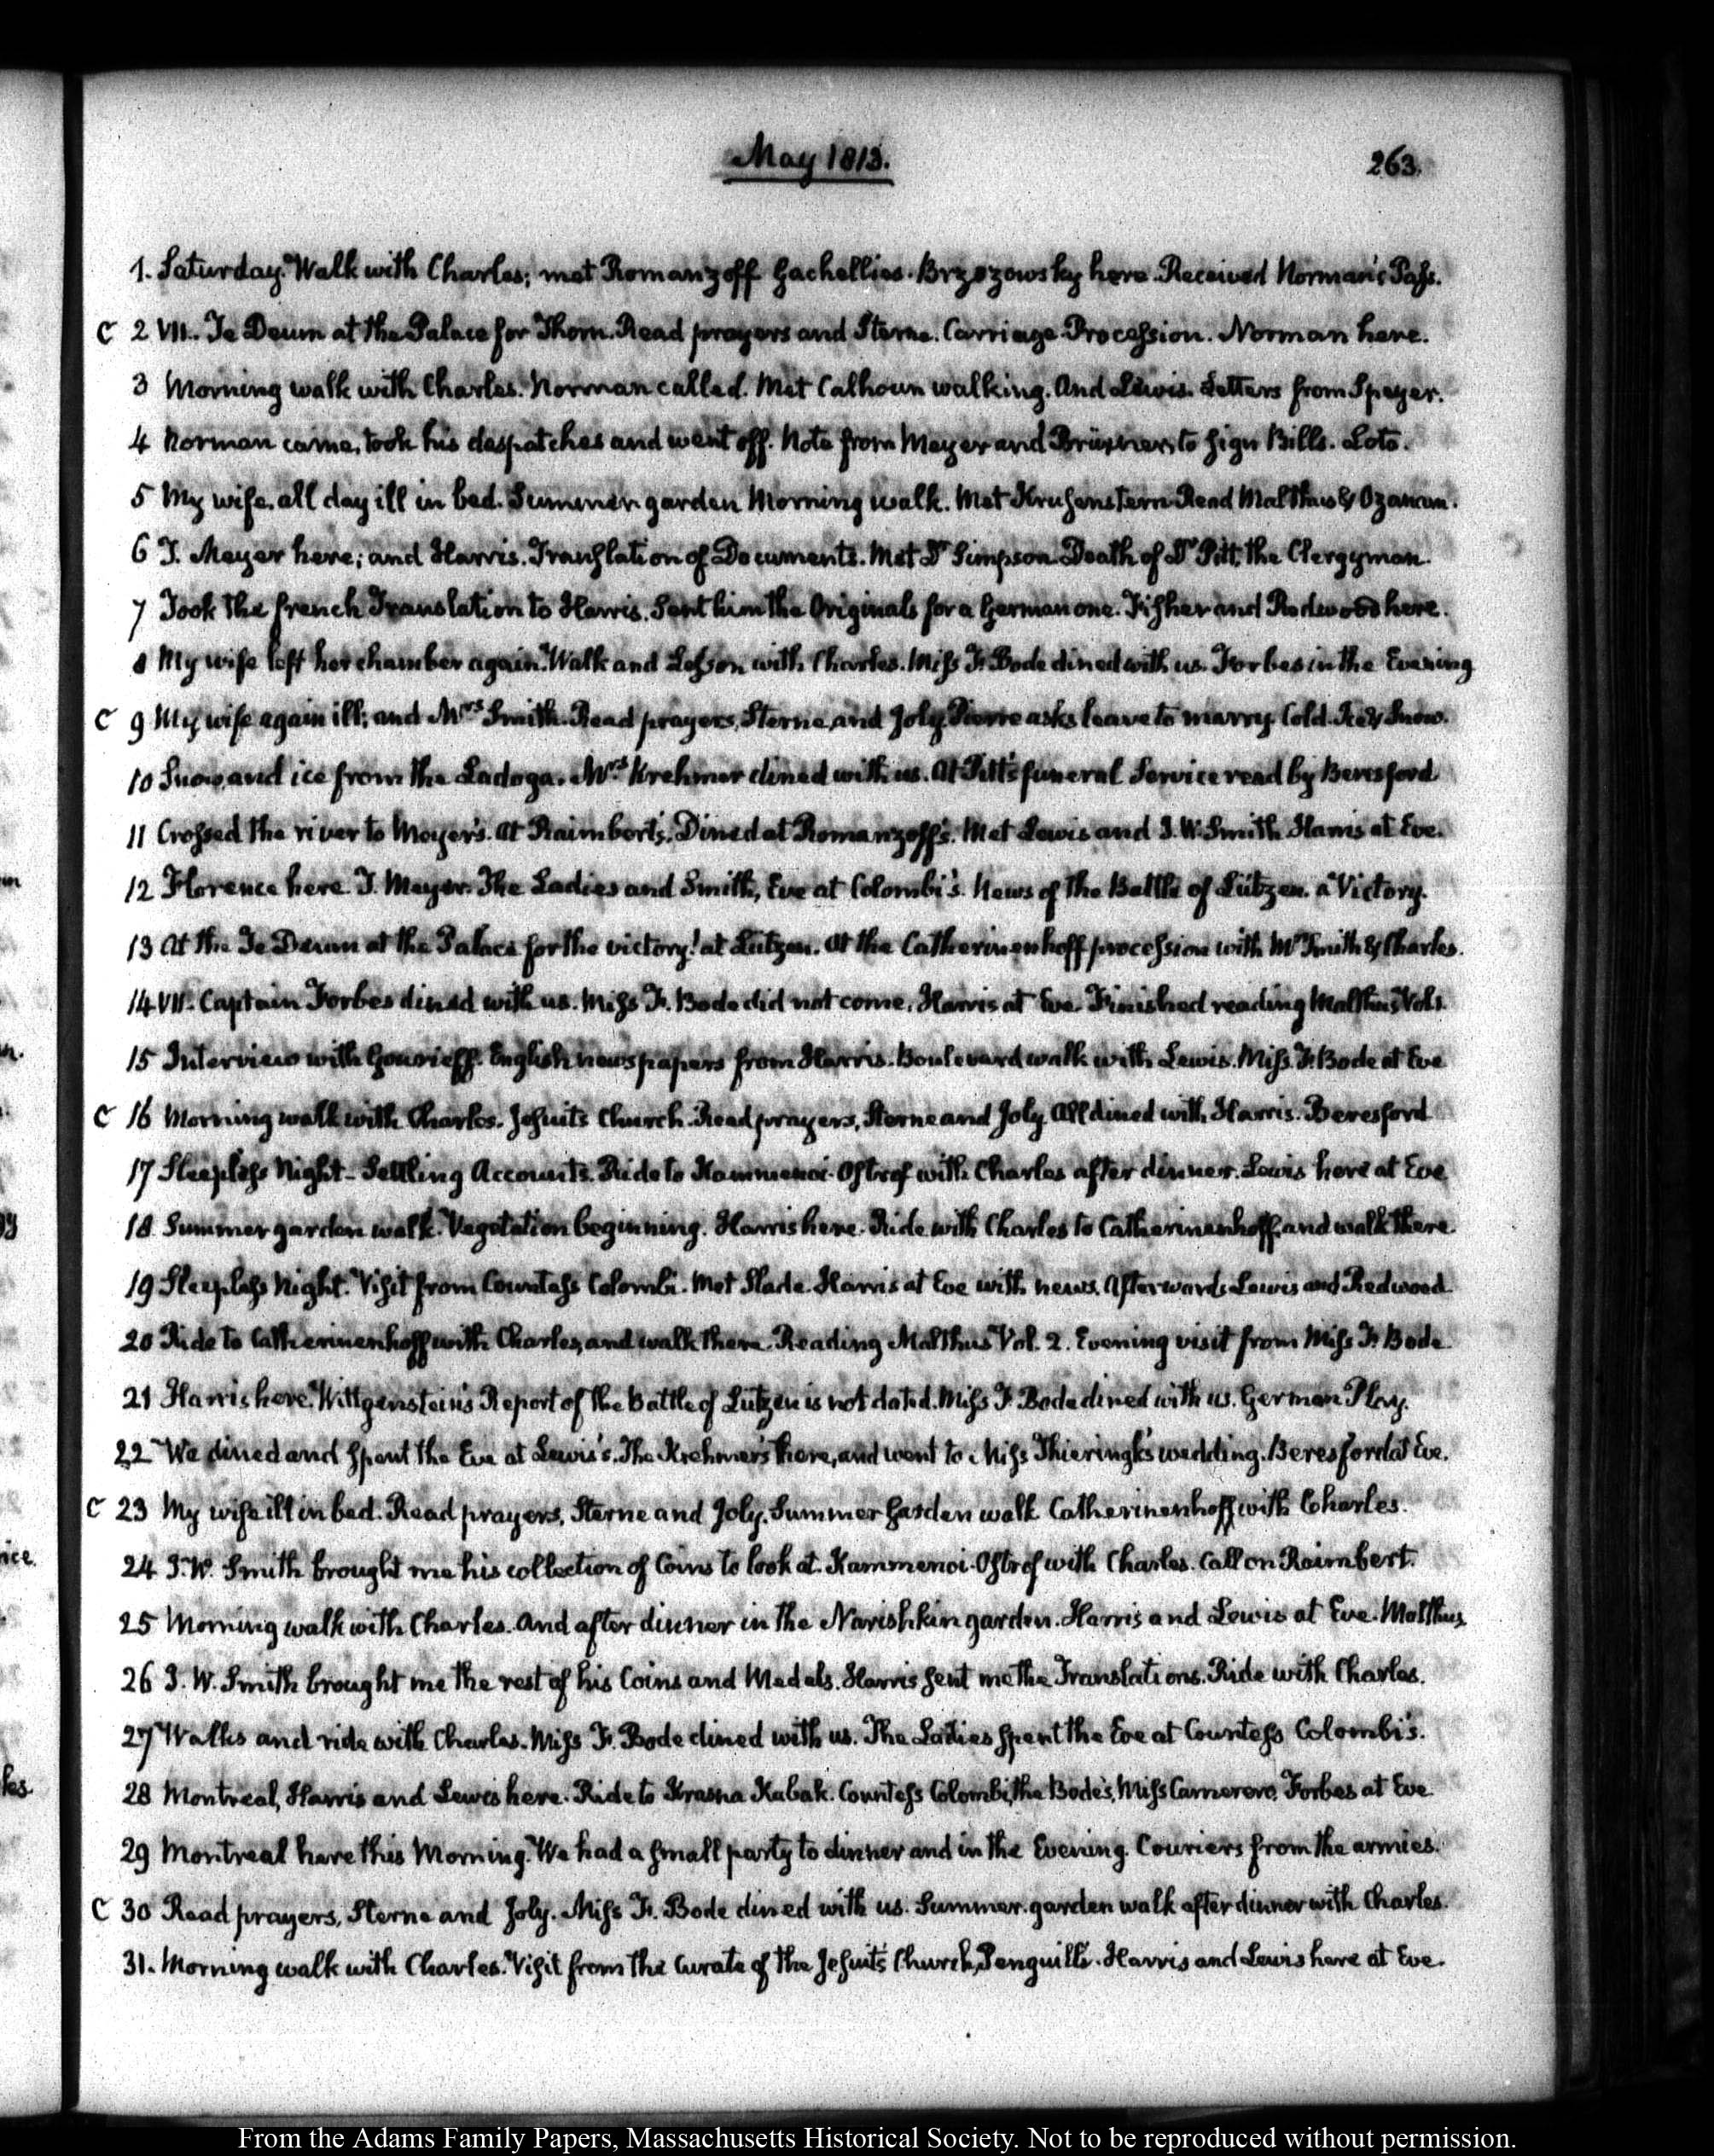 May 1813.
263.
1. Saturday. Walk with Charles; met Romanzoff Brzozowsky here. Received Norman's Pass.
C 2 VII.. Te Deum at the Palace for Thorn. Read prayers and Sterne. Carriage Procession. Norman here.
3 Morning walk with Charles. Norman called. Met Calhoun walking. And Lewis. Letters from Speyer.
4 Norman came, took his despatches and went off. Note from Meyer and Brüxner, to sign Bills. Loto.
5 My wife, all day ill in bed. Summer garden Morning walk. Met Krusenstern. Read Malthus & Ozanam.
6 T. Meyer here; and Harris. Translation of Documents. Met Dr Simpson. Death of Dr Pitt, the Clergyman.
7 Took the french Translation to Harris. Sent him the Originals for a German one. Fisher and Redwood here.
8 My wife left her chamber again. Walk and Lesson with Charles. Miss Fr. Bode dined with us. Forbes in the Evening
C 9 My wife again ill; and Mrs Smith. Read prayers, Sterne, and Joly. Pierre asks leave to marry. Cold. Ice & Snow.
10 Snow, and ice from the Ladoga. Mrs Krehmer dined with us. At Pitt's funeral Service read by Beresford
11 Crossed the river to Meyer's. At Raimbert's. Dined at Romanzoff's. Met Lewis and J. W. Smith. Harris at Eve.
12 Florence here. T. Meyer. The Ladies and Smith, Eve at Colombi's. News of the Battle of Lützen. a Victory.
13 At the Te Deum at the Palace for the victory! at Lutzen. At the Catherinenhoff procession with Mr Smith & Charles.
14 VII. Captain Forbes dined with us. Miss Fr. Bode did not come. Harris at Eve. Finished reading Malthus Vol. 1.
15 Interview with Gourieff. English newspapers from Harris. Boulevard walk with Lewis. Miss Fr. Bode at Eve
C 16 Morning walk with Charles. Jesuits Church. Read prayers, Sterne and Joly. All dined with Harris. Beresford
17 Sleepless Night - Settling Accounts. Ride to Kammenoi-Ostrof with Charles after dinner. Lewis here at Eve
18 Summer garden walk. Vegetation beginning. Harris here. Ride with Charles to Catherinenhoff, and walk there.
19 Sleepless Night. Visit from Countess Colombi. Met Slade. Harris at Eve with news. Afterwards Lewis and Redwood
20 Ride to Catherinenhoff with Charles, and walk there. Reading Malthus Vol. 2. Evening visit from Miss Fr. Bode.
21 Harris here. Wittgenstein's Report of the Battle of Lutzen is not dated. Miss Fr. Bode dined with us. German Play.
22 We dined and spent the Eve at Lewis's. The Krehmer's here, and went to Miss Thieringk's wedding. Beresford at Eve.
C 23 My wife ill in bed. Read prayers, Sterne and Joly. Summer Garden walk Catherinenhoff with Charles.
24 J. W. Smith brought me his collection of Coins to look at. Kammenoi-Ostrof with Charles. Call on Raimbert.
25 Morning walk with Charles. And after dinner in the Narishkin garden. Harris and Lewis at Eve. Malthus
26 J. W. Smith brought me the rest of his Coins and Medals. Harris sent me the Translations. Ride with Charles.
27 Walks and ride with Charles. Miss Fr. Bode dined with us. The Ladies spent the Eve at Countess Colombi's.
28 Montreal, Harris and Lewis here. Ride to Krasna Kabak. Countess Colombi, the Bode's, Miss Forbes at Eve
29 Montreal here this Morning. We had a small party to dinner and in the Evening. Couriers from the armies.
C 30 Read prayers, Sterne and Joly. Miss Fr. Bode dined with us. Summer garden walk after dinner with Charles.
31. Morning walk with Charles. Visit from the Curate of the Jesuits Church, Harris and Lewis here at Eve.
From the Adams Family Papers, Massachusetts Historical Society. Not to be reproduced without permission.